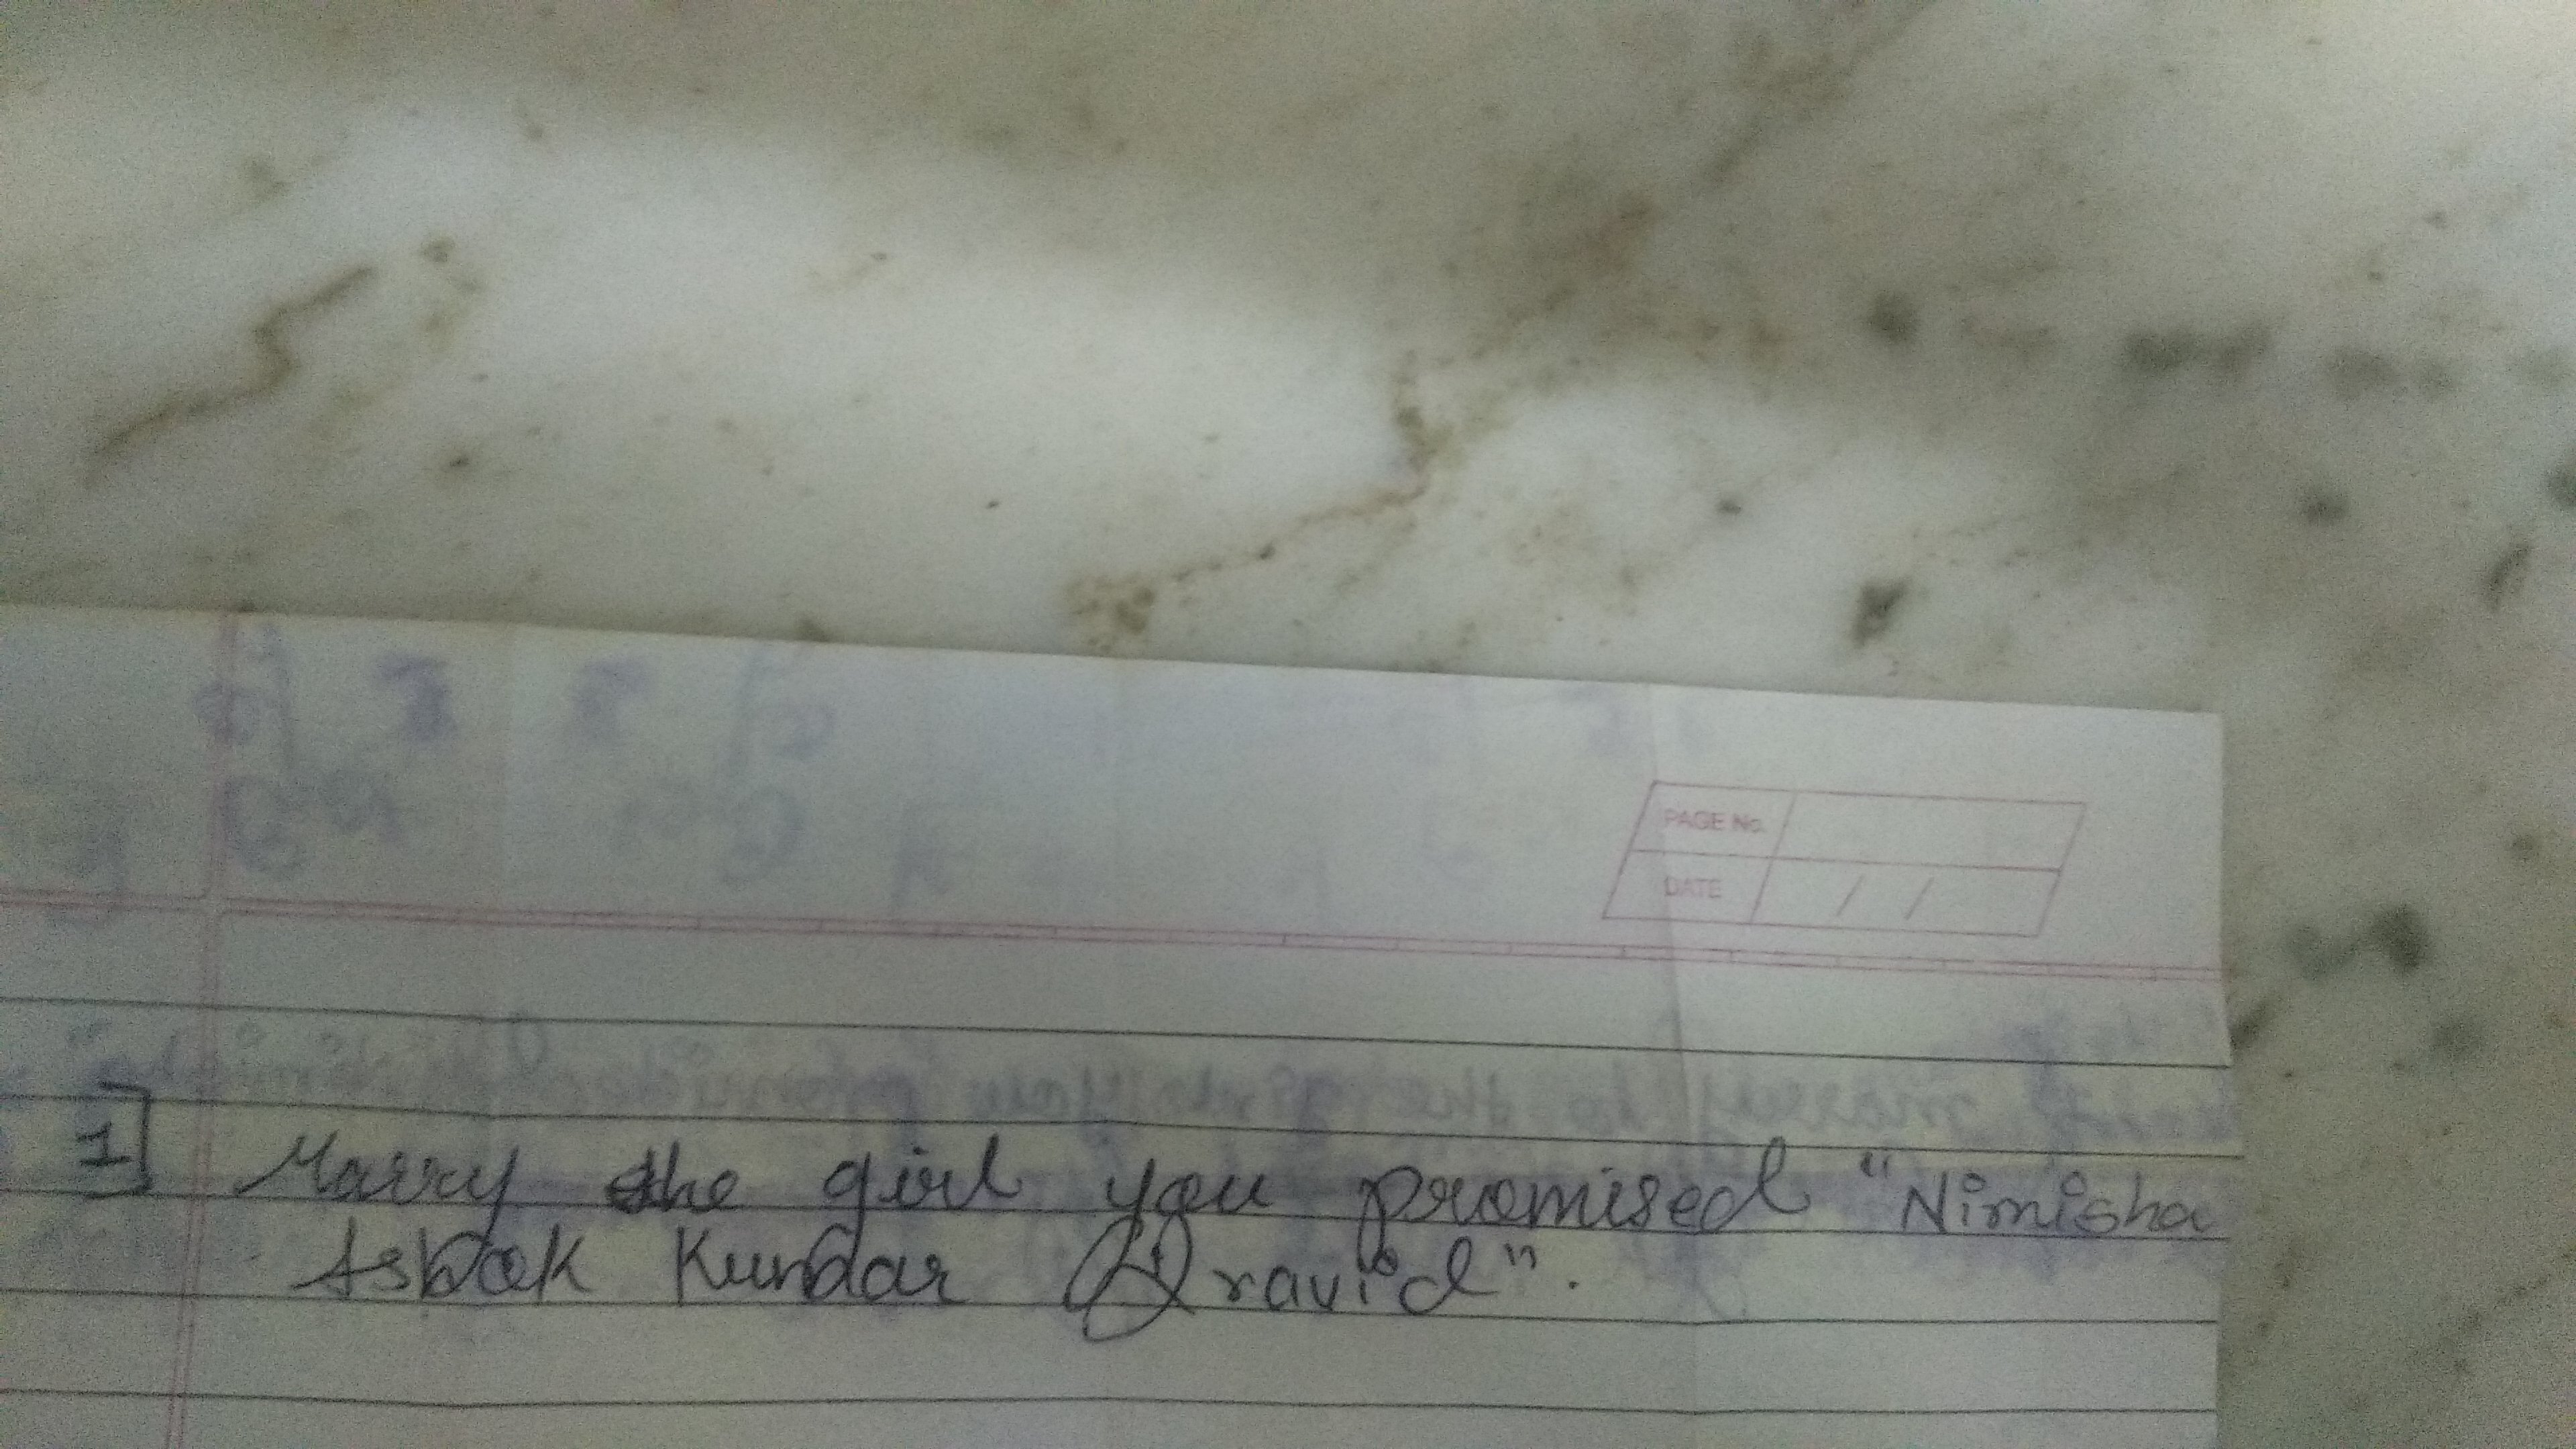 PAGE No.
DATE / /
1] Marry the girl you promised "Nimisha
Ashok Kundar Dravid".